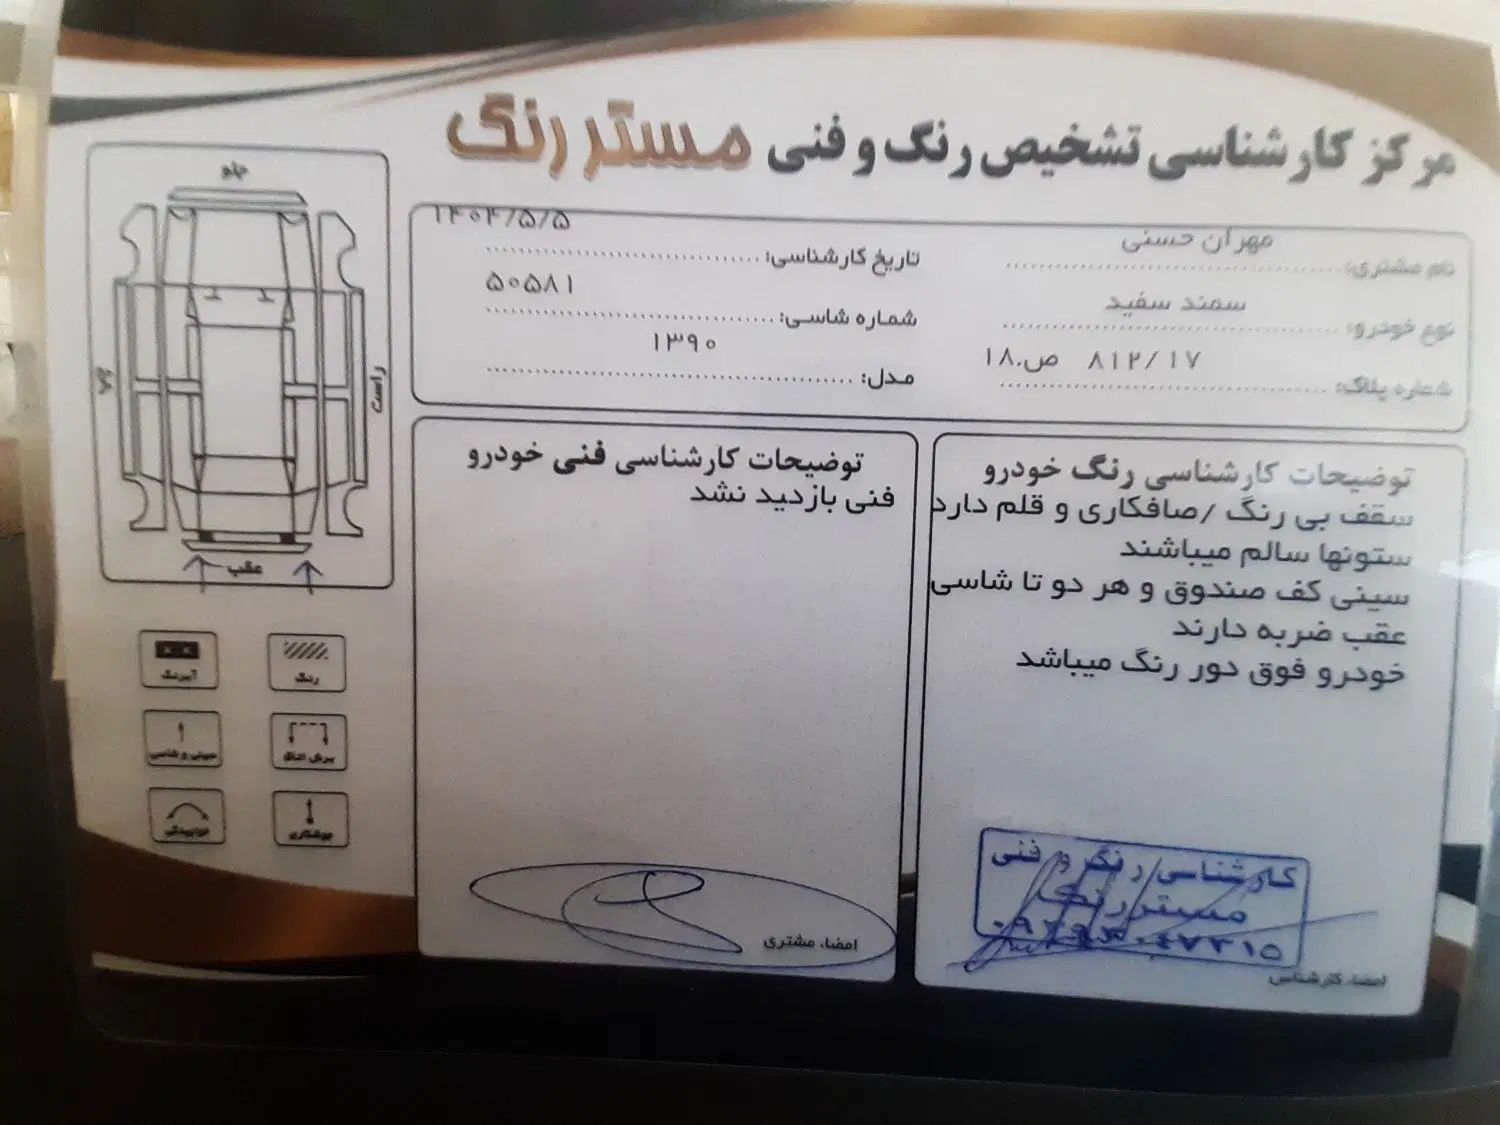 مرکز کارشناسی تشخیص رنگ و فنی مستر رنگ
نام مشتری: مهران حسنی
تاریخ کارشناسی: ۱۴۰۴/۵/۵
نوع خودرو: سمند سفید
شماره شاسی: ۵۰۵۸۱
شماره پلاک: ۸۱۲/۱۷ ص.۱۸
مدل: ۱۳۹۰
توضیحات کارشناسی رنگ خودرو
سقف بی رنگ /صافکاری و قلم دارد
ستونها سالم میباشند
سینی کف صندوق و هر دو تا شاسی
عقب ضربه دارند
خودرو فوق دور رنگ میباشد
کارشناسی رنگ و فنی
مستررنگ
امضاء کارشناسی
توضیحات کارشناسی فنی خودرو
فنی بازدید نشد
امضاء مشتری
جلو
راست
چپ
عقب
رنگ
آبرنگ
برش اتاق
سینی و شاسی
جوشکاری
خوابیدگی